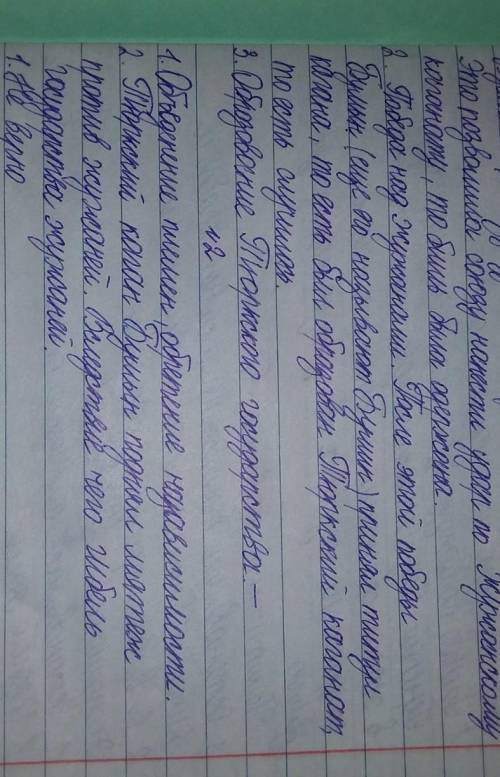 Это позволило союзу нанести удар по Жужанскому
каганату, то бишь была одержана.
2. Победа над Жужанами. После этой победы
Бумын (еще его называют Бумин) принял титул
кагана, то есть был образован Тюркский каганат,
то есть случилось
3. Образование Тюркского государства. –
№2
1. Объединение племен, обретение независимости.
2. Тюркский каган Бумын поднял мятеж
против жужаней. Вследствие чего гибель
государства жужаней.
1. Не верно